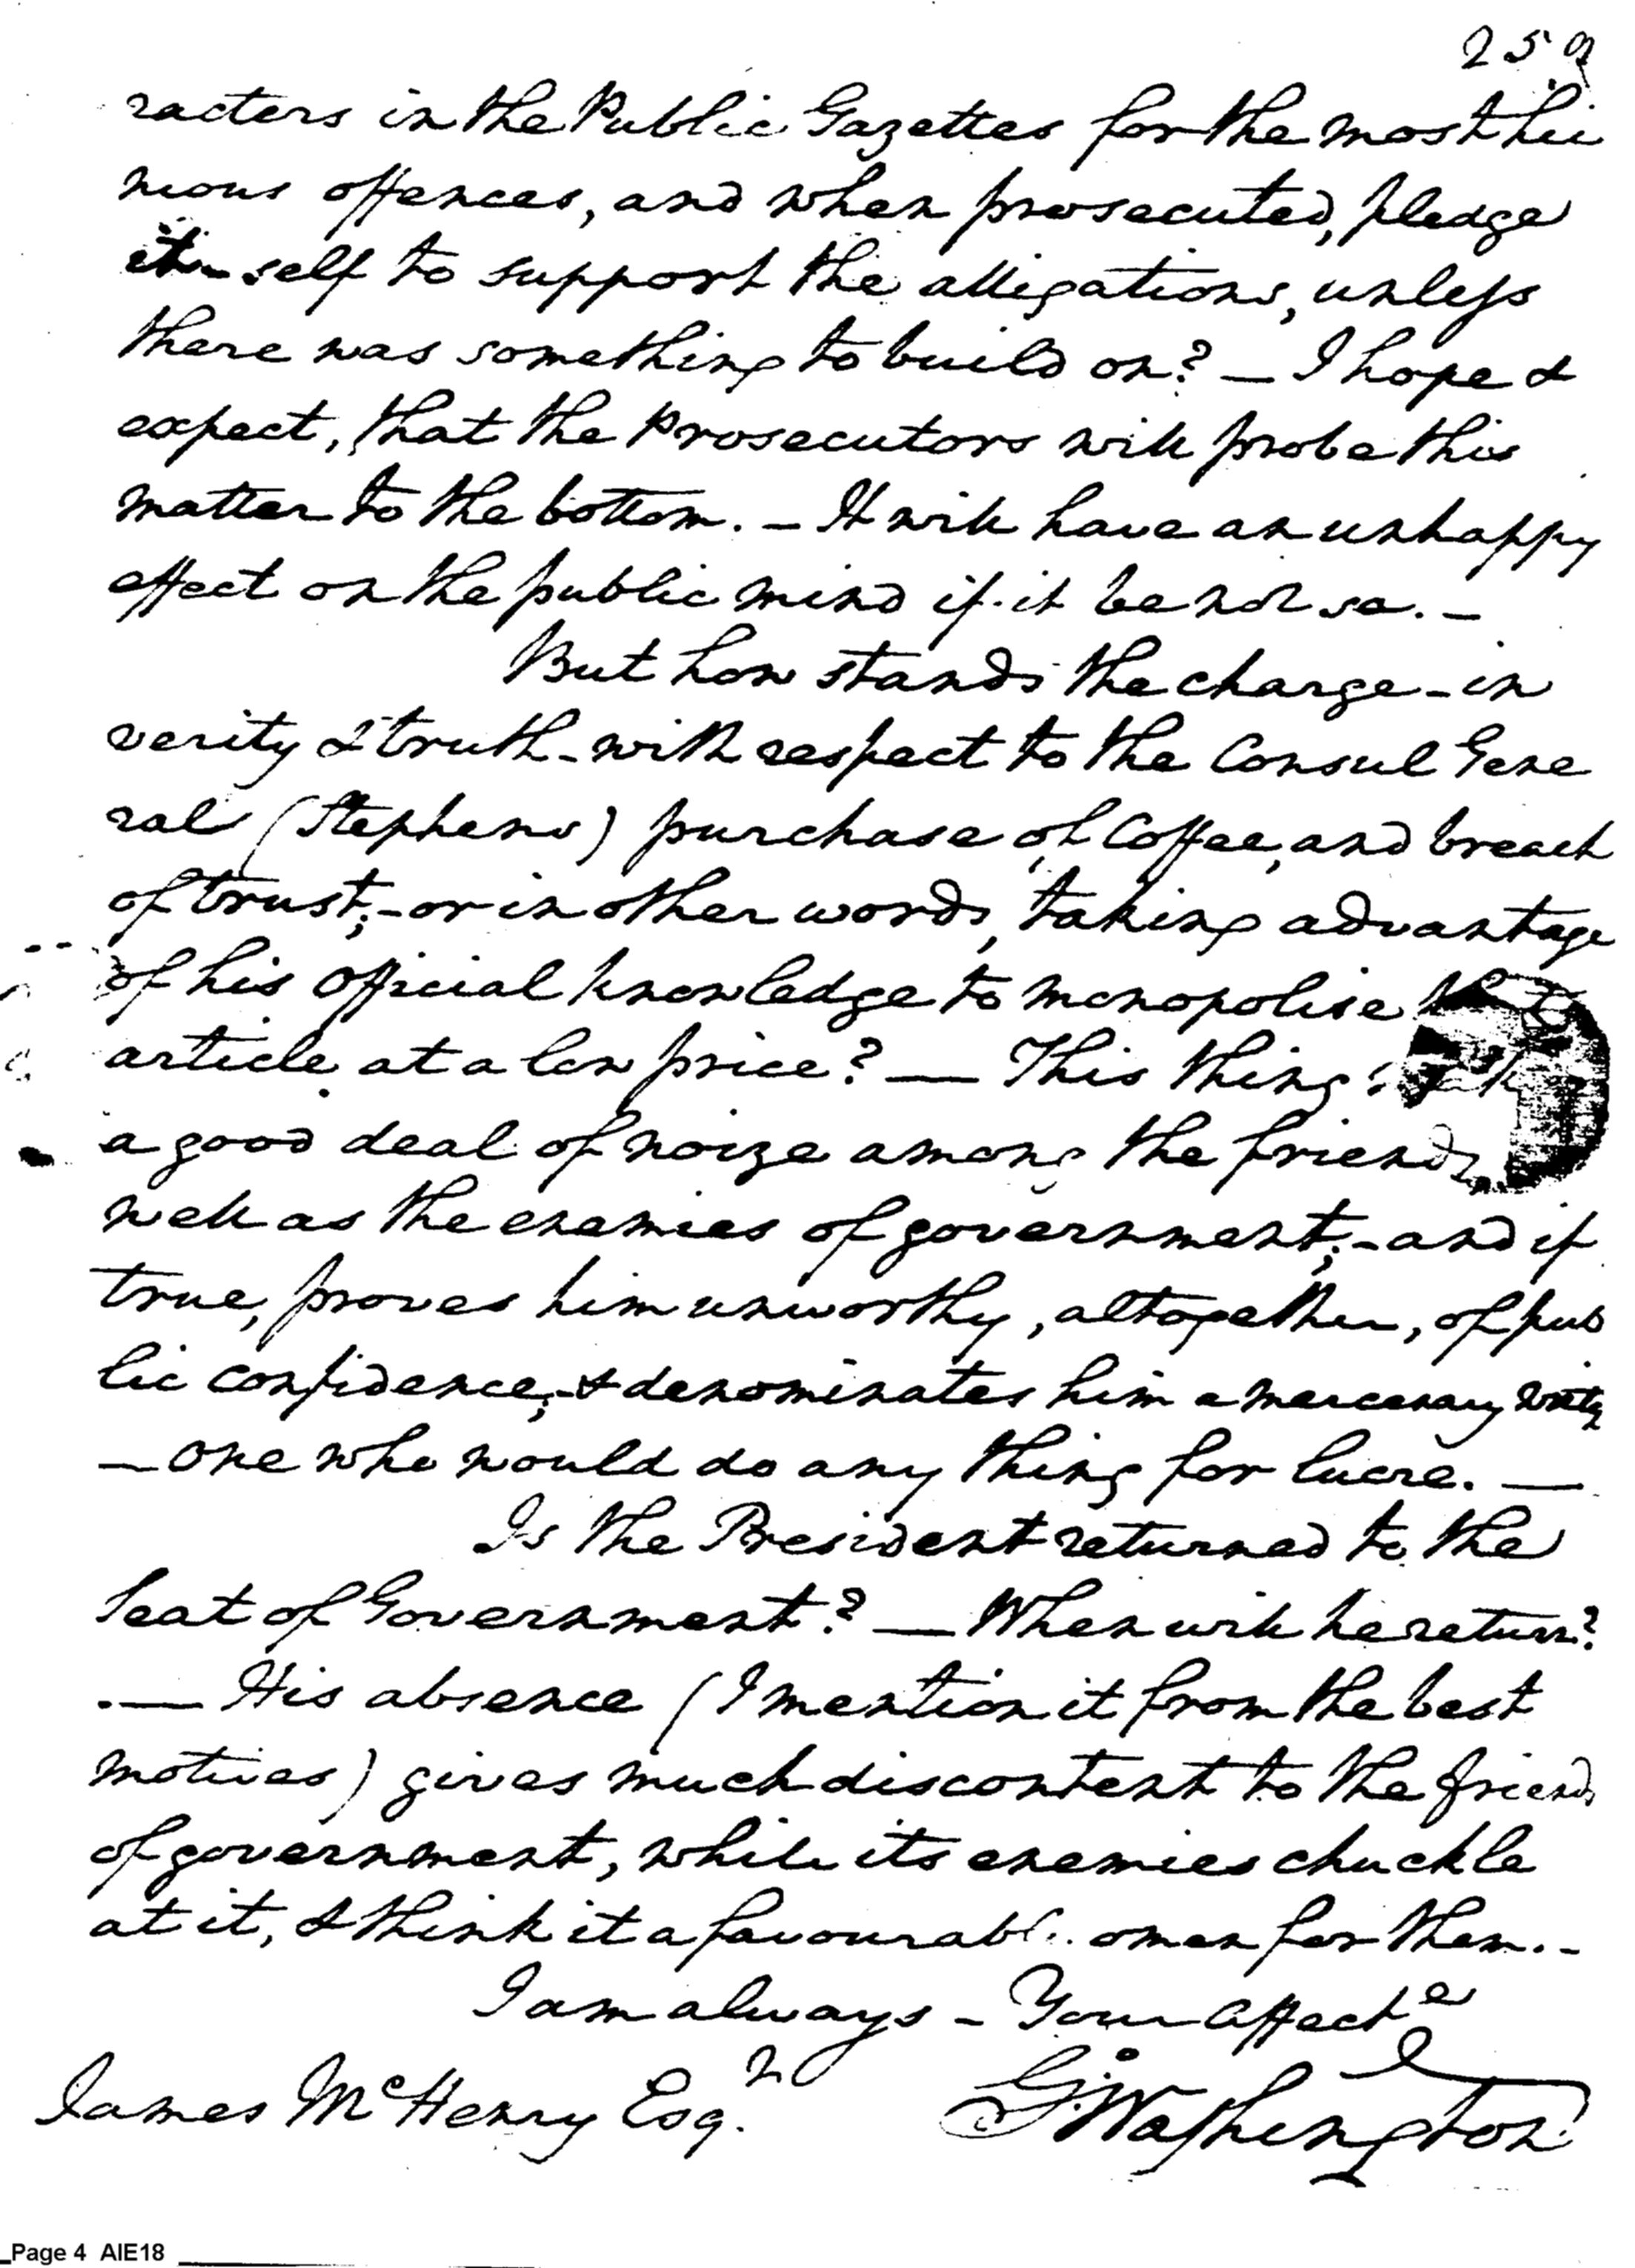 259
racters in the Public Gazettes for the most hei
nious offences, and when prosecuted, pledge
itself to support the alligations, unless
there was something to build on? — I hope &
expect, that the Prosecutors will probe this
matter to the bottom. — It will have an unhappy
effect on the public mind if it be not so. —
But how stands the charge – in
verity & truth – with respect to the Consul Gene
ral (Stephens) purchase of Coffee, and breach
of trust; – or in other words, taking advantage
of his Official knowledge to monopolise that
article at a low price? — This thing
a good deal of noize among the friends
well as the enemies of government; – and if
true, proves him unworthy, altogether, of pub
lic confidence; – & denominates him a mercenary
— one who would do any thing for lucre. —
Is the President returned to the
Seat of Government? — When will he return?
— His absence (I mention it from the best
motives) gives much discontent to the friends
of government, while its enemies chuckle
at it, & think it a favourable omen for them. –
I am always – Your Affecte
James McHenry Esqr.
Go: Washington
Page 4 AIE18